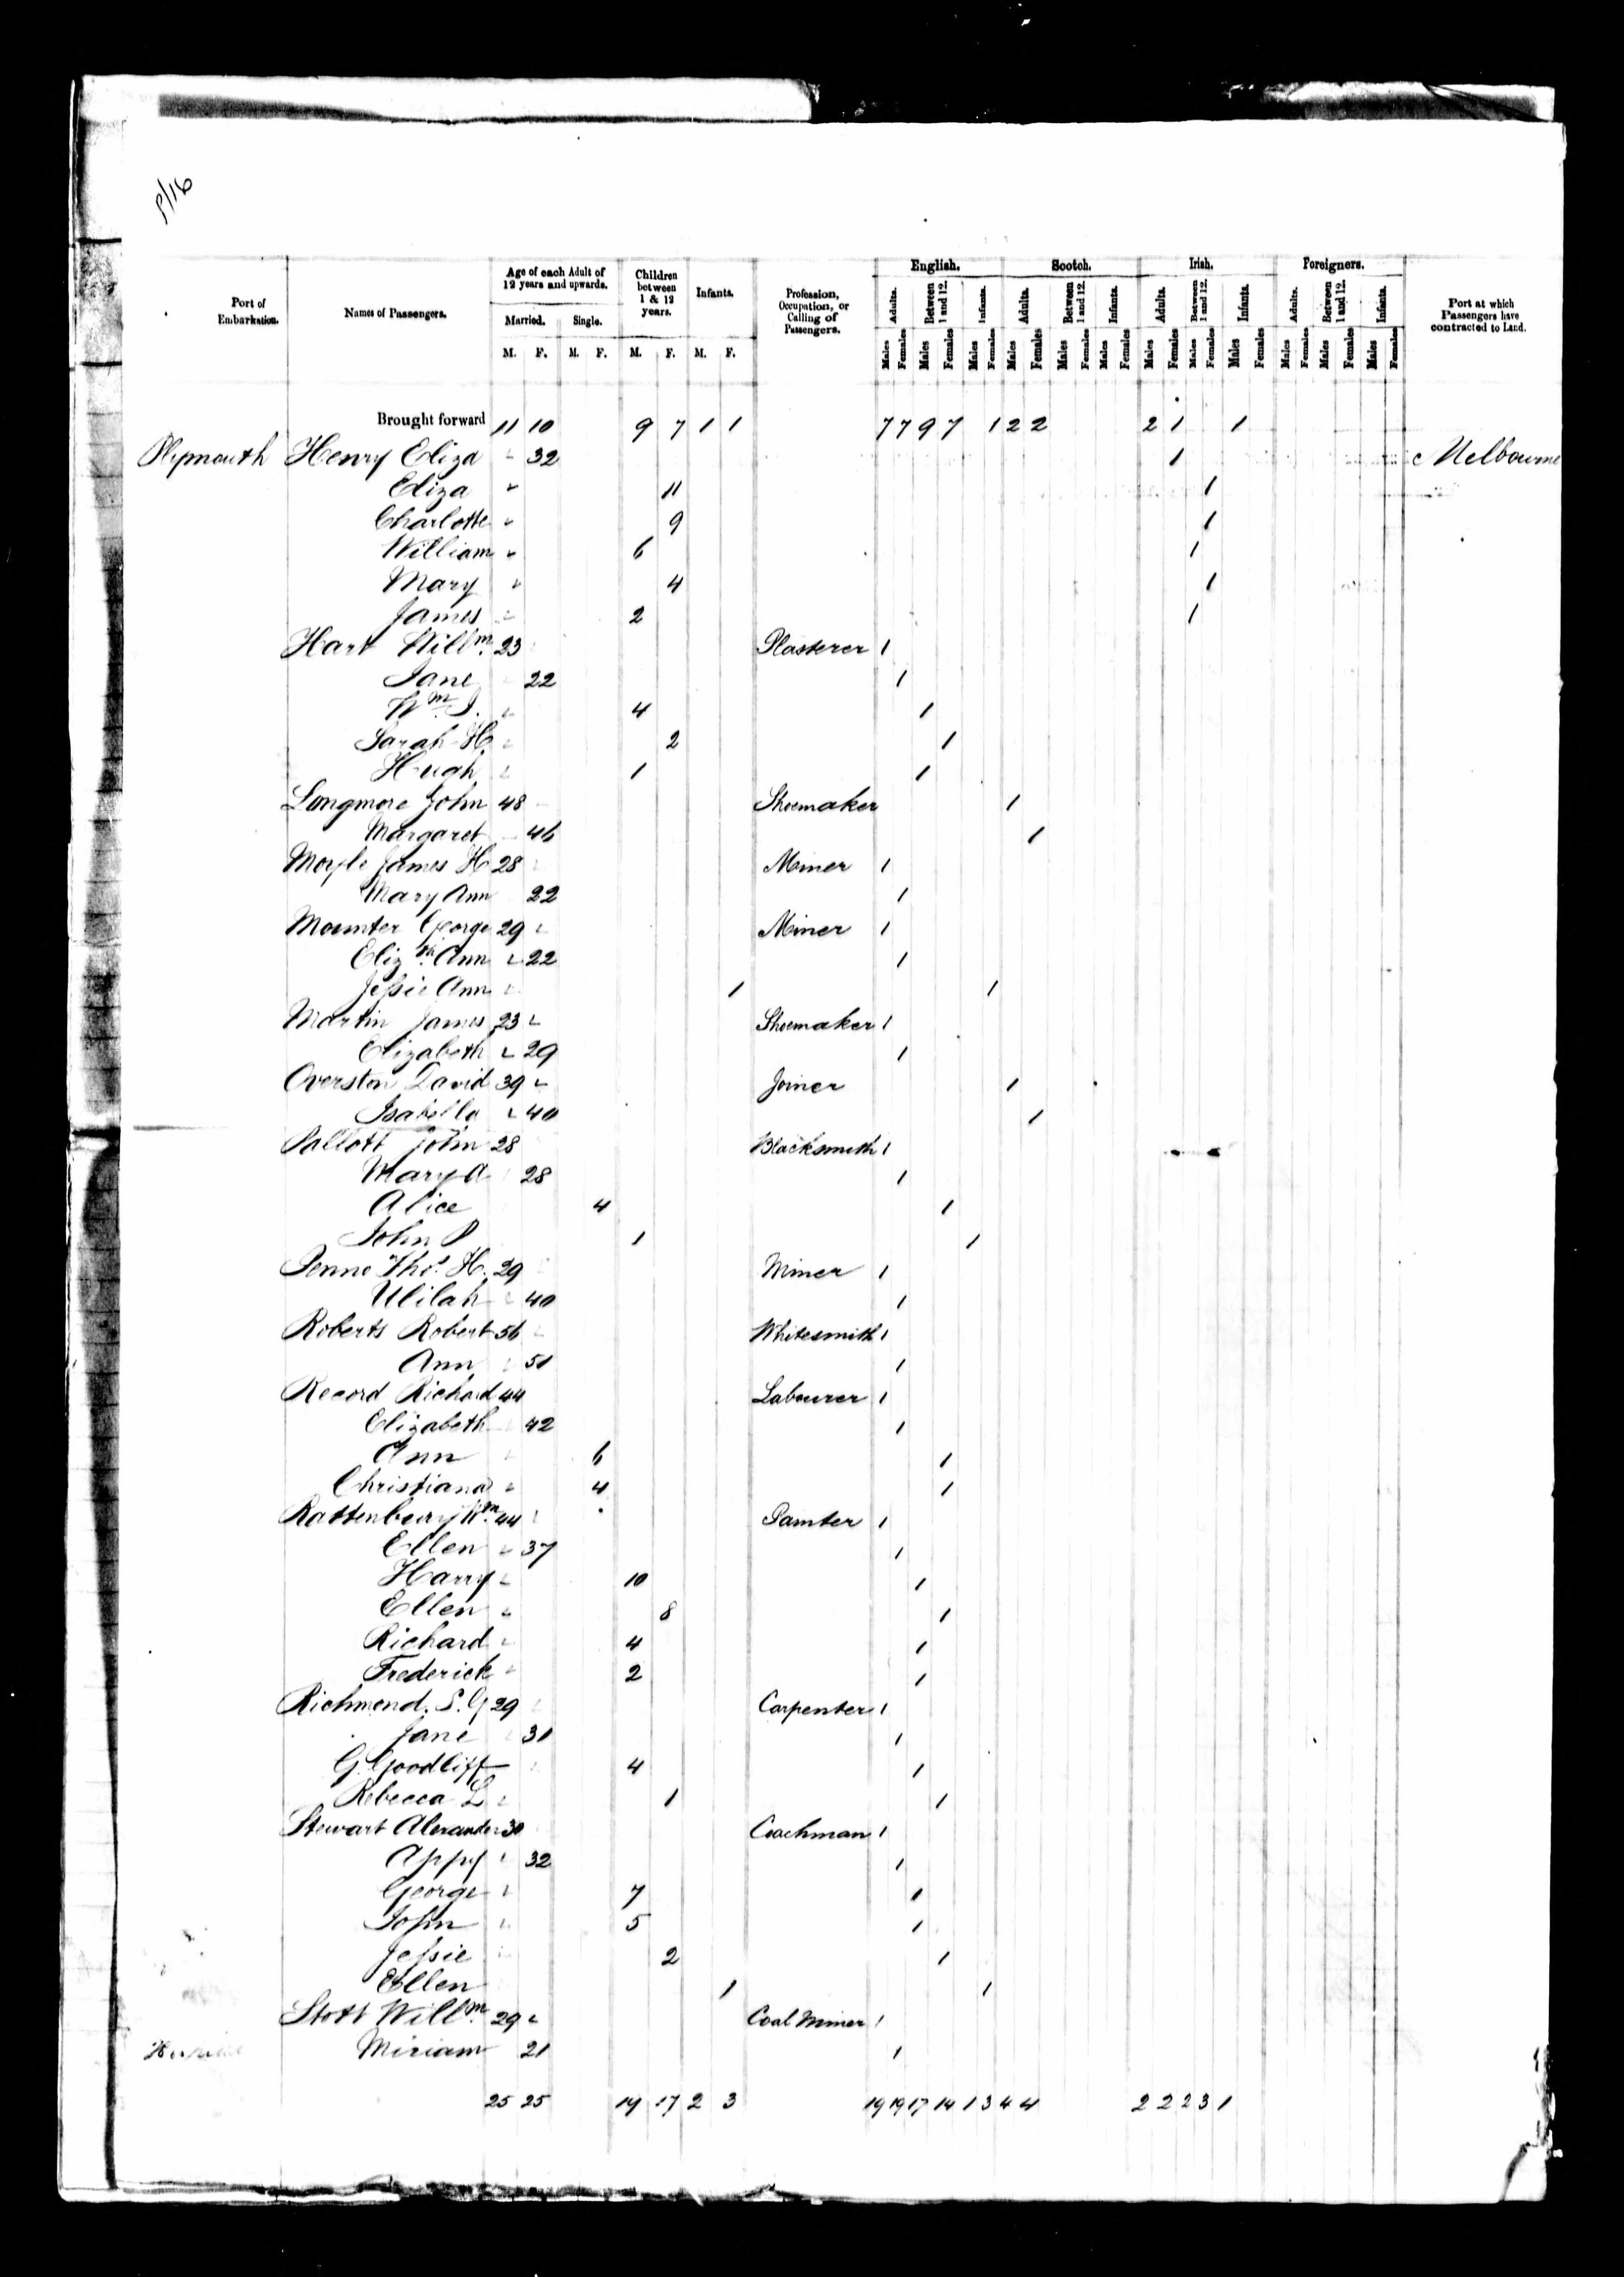 P/16
English. Scotch. Irish. Foreigners.
Port of Embarkation. Names of Passengers. Age of each Adult of 12 years and upwards. Children between 1 & 12 years. Infants. Profession, Occupation, or Calling of Passengers. Adults. Between 1 and 12. Infants. Adults. Between 1 and 12. Infants. Adults. Between 1 and 12. Infants. Adults. Between 1 and 12. Infants. Port at which Passengers have contracted to Land.
Married. Single.
M. F. M. F. M. F. M. F. Males Females Males Females Males Females Males Females Males Females Males Females Males Females Males Females Males Females Males Females Males Females Males Females
Brought forward 11 10 9 7 1 1 7 7 9 7 1 2 2 2 1 1
Plymouth Henry Eliza 32 1 Melbourne
Eliza 11 1
Charlotte 9 1
William 6 1
Mary 4 1
James 2 1
Hart Willm. 23 Plasterer 1
Jane 22 1
Wm. J. 4 1
Sarah H. 2 1
Hugh 1 1
Longmore John 48 Shoemaker 1
Margaret 46 1
Moyle James H 28 Miner 1
Mary Ann 22 1
Mounter George 29 Miner 1
Elizth. Ann 22 1
Jessie Ann 1 1
Martin James 23 Shoemaker 1
Elizabeth 29 1
Overston David 39 Joiner 1
Isabella 40 1
Pallott John 28 Blacksmith 1
Mary A 28 1
Alice 4 1
John P 1 1
Penno Thos. H. 29 Miner 1
Ulilah 40 1
Roberts Robert 56 Whitesmith 1
Ann 51 1
Record Richard 44 Labourer 1
Elizabeth 42 1
Ann 6 1
Christiana 4 1
Rattenbury Wm. 44 Painter 1
Ellen 37 1
Harry 10 1
Ellen 8 1
Richard 4 1
Frederick 2 1
Richmond. S. G 29 Carpenter 1
Jane 31 1
G. Goodliff 4 1
Rebecca L 1 1
Stewart Alexander 30 Coachman 1
Appy 32 1
George 7 1
John 5 1
Jessie 2 1
Ellen 1 1
Stott Willm. 29 Coal Miner 1
Miriam 21 1
25 25 19 17 2 3 19 19 17 14 1 3 4 4 2 2 2 3 1